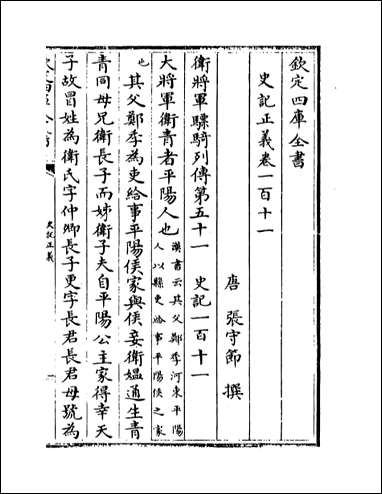 欽定四庫全書
史記正義卷一百十一
唐 張守節 撰
衛將軍驃騎列傳第五十一 史記一百十一
大將軍衛青者平陽人也
漢書云其父鄭季河東平陽
人以縣吏給事平陽侯之家
也
其父鄭季為吏給事平陽侯家與侯妾衛媼通生青
青同母兄衛長子而姊衛子夫自平陽公主家得幸天
子故冒姓為衛氏字仲卿長子更字長君長君母號為
史記正義